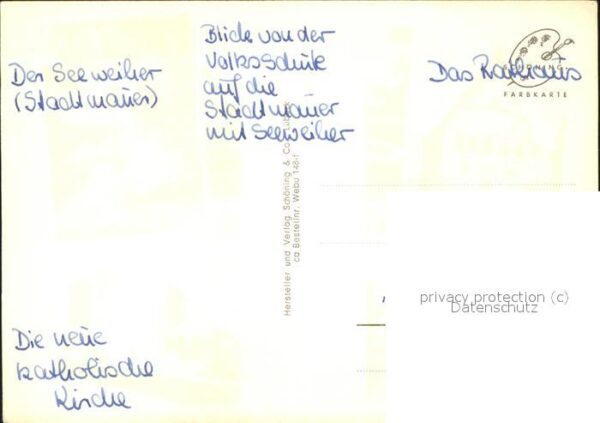 Der Seeweiher
(Stadtmauer)
Blick von der
Volksschule
auf die
Stadtmauer
mit Seeweiher
Das Rathaus
SCHÖNING
FARBKARTE
Hersteller und Verlag Schöning & Co
ca Bestellnr. Webu 148-f
privacy protection (c)
Datenschutz
Die neue
katholische
Kirche